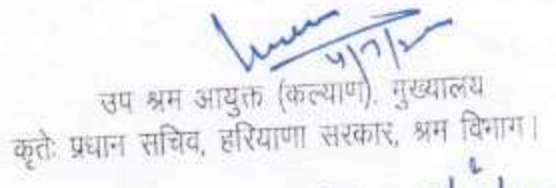 4/7/2
उप श्रम आयुक्त (कल्याण), मुख्यालय
कृतेः प्रधान सचिव, हरियाणा सरकार, श्रम विभाग।